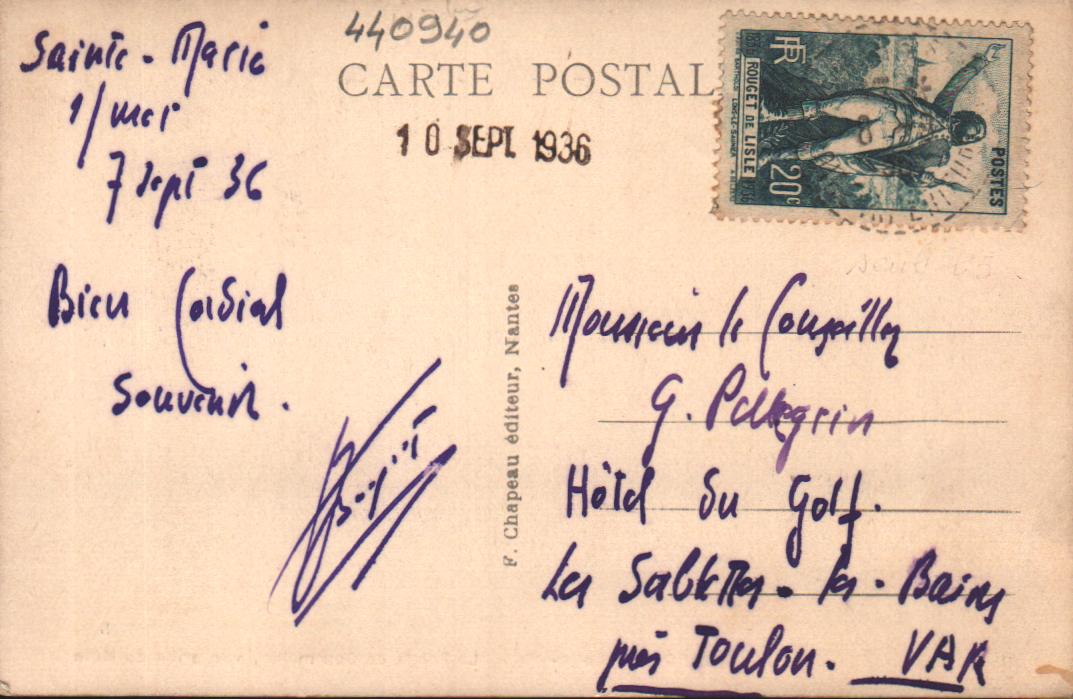 440940
CARTE POSTAL
10 SEPT. 1936
RF
POSTES
ROUGET DE LISLE
20c
Sainte-Marie
s/mer
7 sept 36
Bien Cordial
Souvenir.
F. Chapeau éditeur, Nantes
Monsieur le Conseiller
G. Pellegrin
Hôtel du Golf.
Les Sablettes-les-Bains
près Toulon. VAR